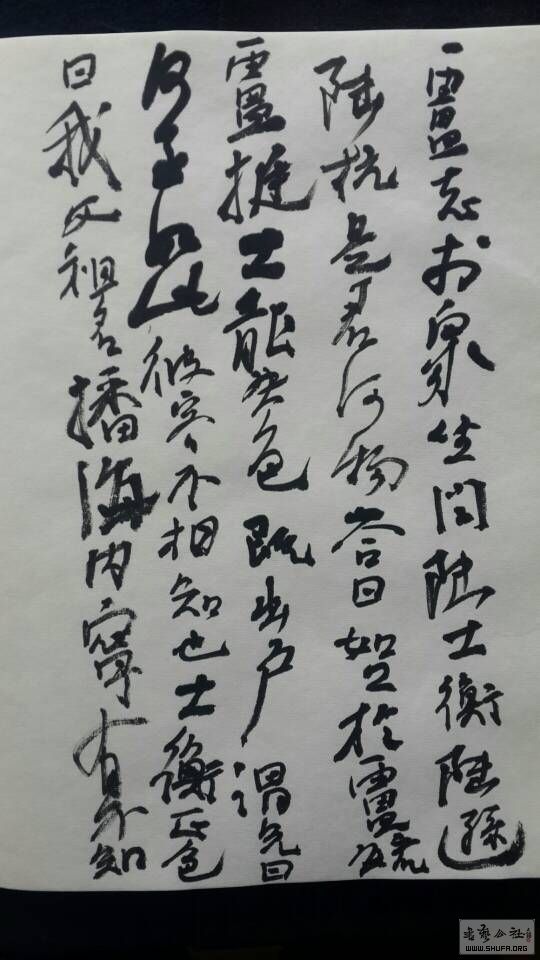 盧志於眾坐問陸士衡陸遜
陸抗是君何物答曰如卿於盧毓
盧挺士龍失色既出戶謂兄曰
何至如此彼容不相知也士衡正色
曰我父祖名播海内寧有不知
书艺公社
WWW.SHUFA.ORG